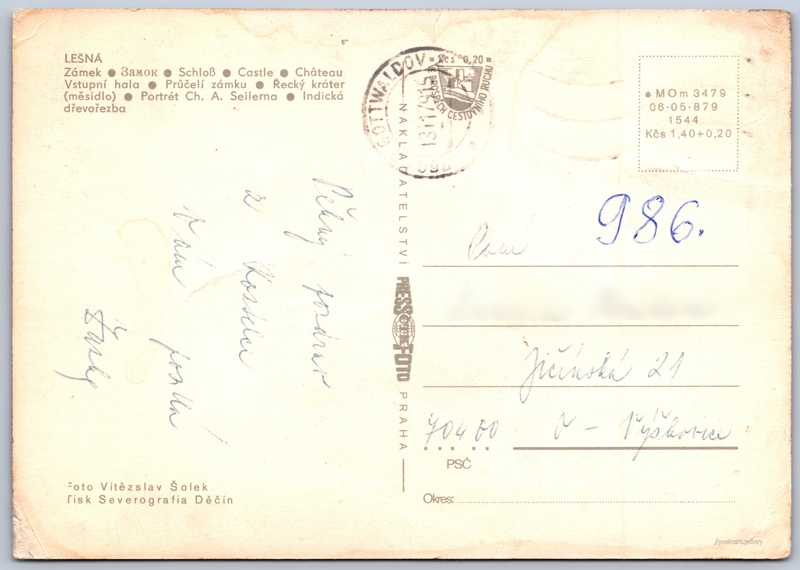 LEŠNÁ
Zámek ● Замок ● Schloß ● Castle ● Château
Vstupní hala ● Průčelí zámku ● Řecký kráter
(měsidlo) ● Portrét Ch. A. Seilerna ● Indická
dřevořezba
Pěkný pozdrav
z Kostelce
Vám posílá
Foto Vítězslav Šolek
Tisk Severografia Děčín
GOTTWALDOV
Kčs 0,20
CESTOVNÍHO RUCHU
NAKLADATELSTVÍ
PRESSFOTO
PRAHA
● MOm 3479
06-05-879
1544
Kčs 1,40+0,20
986.
Paní
Jičínská 21
70400 Výškovice
PSČ
Okres: